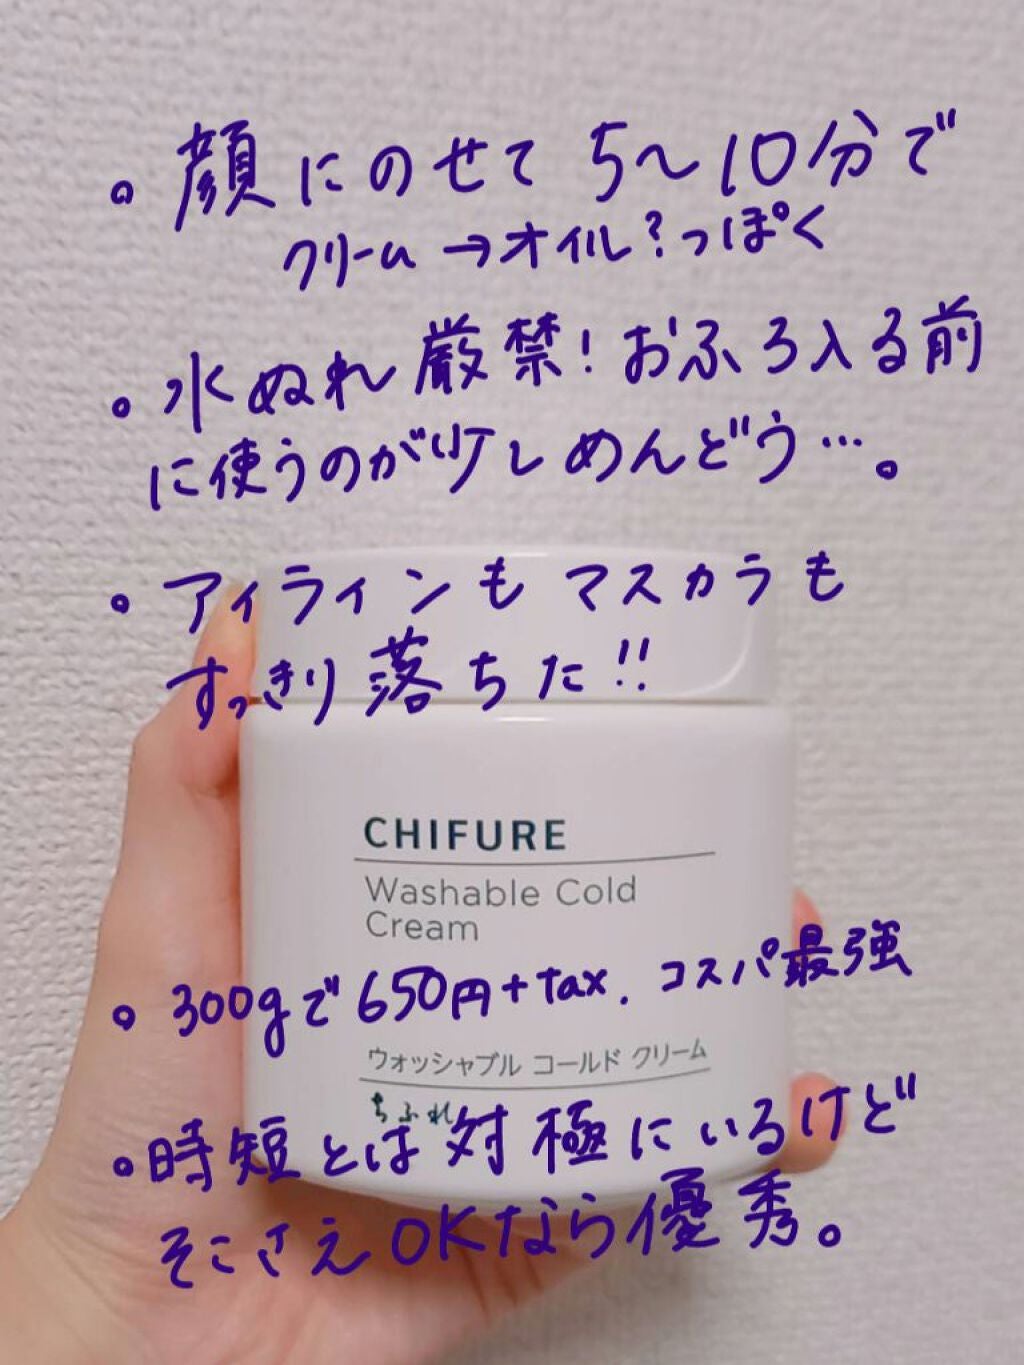 • 顔にのせて 5〜10分で
クリーム→オイル?っぽく
• 水ぬれ厳禁!おふろ入る前
に使うのが少しめんどう…。
• アイラインもマスカラも
すっきり落ちた!!
CHIFURE
Washable Cold
Cream
• 300gで650円+tax. コスパ最強
ウォッシャブル コールド クリーム
ちふれ
• 時短とは対極にいるけど
そこさえOKなら優秀。